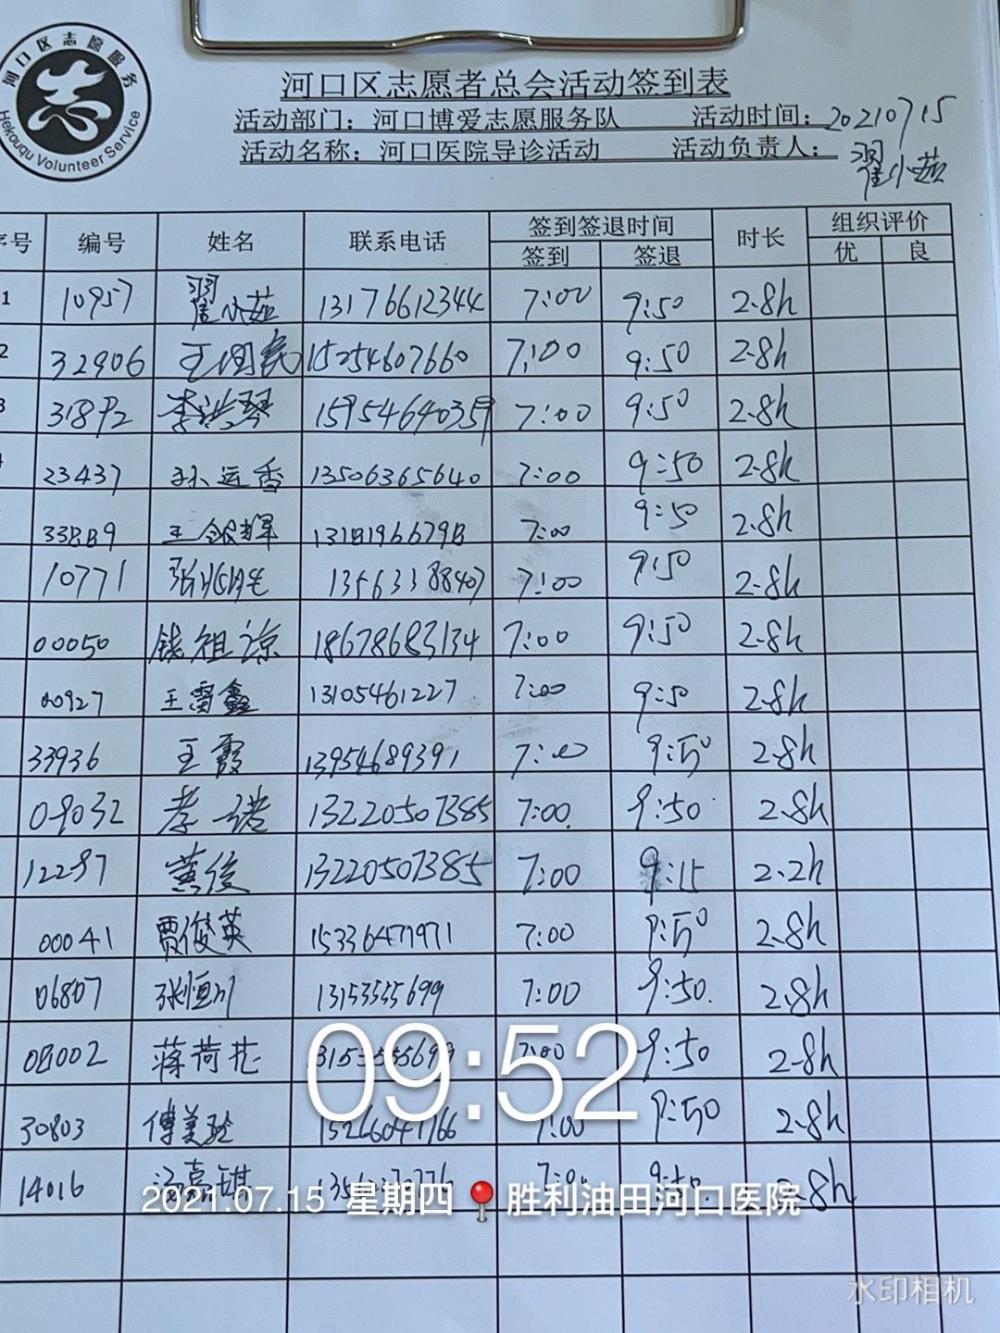 河口区志愿服务
Hekouqu Volunteer Service
河口区志愿者总会活动签到表
活动部门：河口博爱志愿服务队 活动时间：20210715
活动名称：河口医院导诊活动 活动负责人：翟小茹
序号 编号 姓名 联系电话 签到签退时间 时长 组织评价
签到 签退 优 良
1 10957 翟小茹 13176612344 7:00 9:50 2.8h
2 32906 王国民 15254607660 7:00 9:50 2.8h
3 31892 李洪琴 15954640359 7:00 9:50 2.8h
23437 孙运香 13506365640 7:00 9:50 2.8h
33889 王银辉 13181966798 7:00 9:50 2.8h
10771 张兆胜 13563388407 7:00 9:50 2.8h
00050 钱祖谅 18678683134 7:00 9:50 2.8h
00927 王雷鑫 13105461227 7:00 9:50 2.8h
33936 王霞 13954689391 7:00 9:50 2.8h
09032 13220507385 7:00 9:50 2.8h
12297 黄俊 13220507385 7:00 9:15 2.2h
00041 贾俊英 15336471971 7:00 9:50 2.8h
06807 张恒川 13153555699 7:00 9:50 2.8h
08002 蒋荷花 7:00 9:50 2.8h
09:52
30803 傅美玲 7:00 9:50 2.8h
14016 汤嘉琪 7:00 9:50 2.8h
2021.07.15 星期四 胜利油田河口医院
水印相机